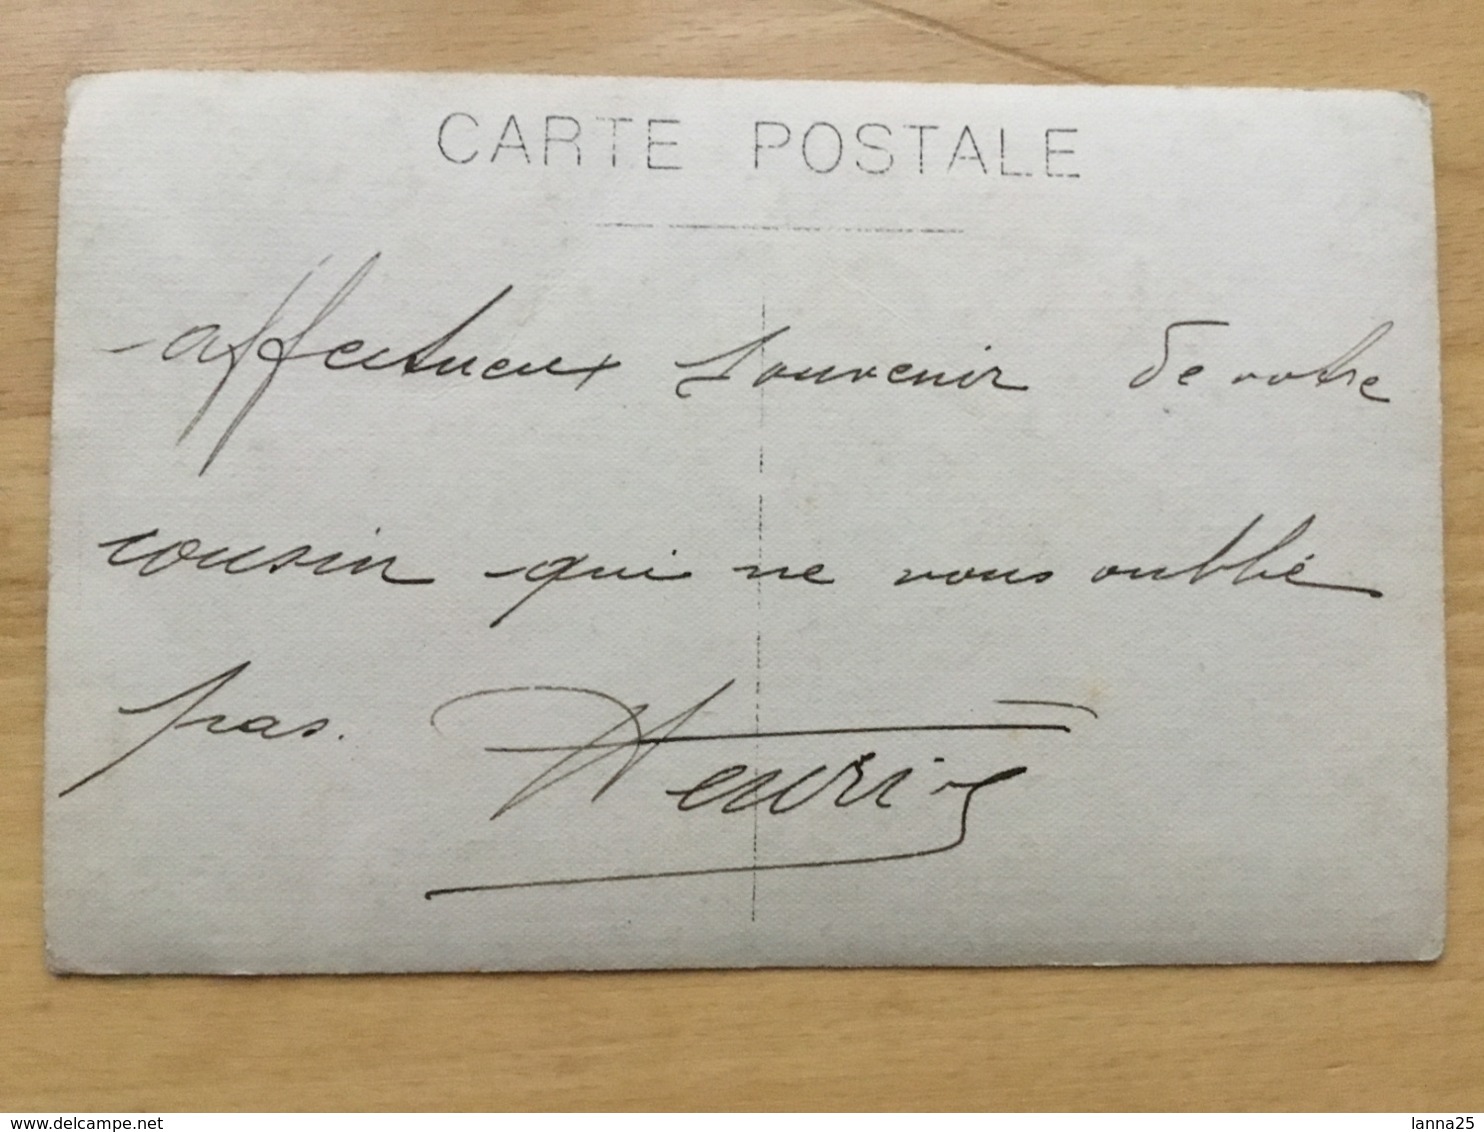 CARTE POSTALE
affectueux souvenir de votre
cousin qui ne vous oublié
pas. Henri
www.delcampe.net
lanna25